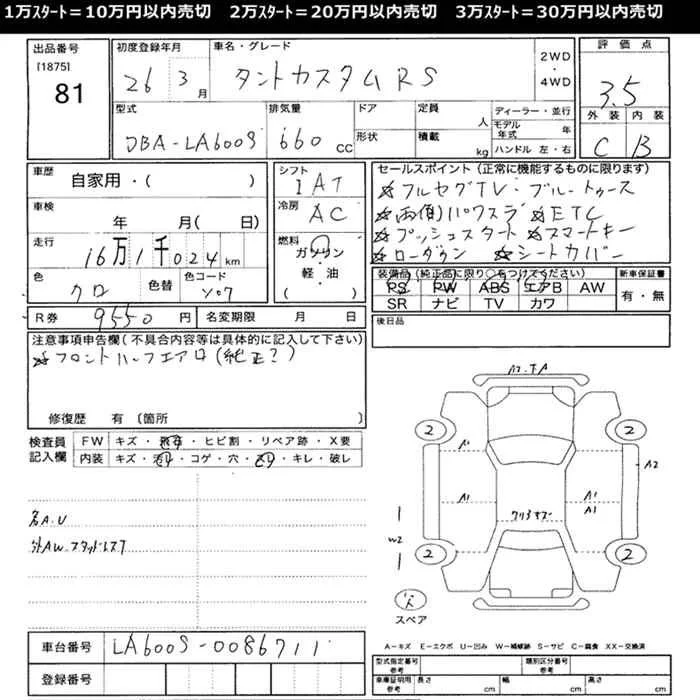 1万スタート=10万円以内売切　2万スタート=20万円以内売切　3万スタート=30万円以内売切
出品番号
[1875]
81
初度登録年月
26 3月
車名・グレード
タントカスタムRS
2WD
・
4WD
評価点
3.5
外装 内装
C B
型式
DBA-LA600S
排気量
660 CC
ドア
形状
定員
人
積載
kg
ディーラー・並行
モデル年式 年
ハンドル 左・右
車歴
自家用・( )
車検
年 月( 日)
走行
16万1千024km
色
クロ
色替
色コード
X07
シフト
IAT
冷房
AC
燃料
ガソリン
軽・油
( )
セールスポイント(正常に機能するものに限ります)
☆フルセグTV・ブルートゥース
☆両側パワスラ ☆ETC
☆プッシュスタート ☆スマートキー
☆ローダウン ☆シートカバー
装備品(純正品に限り○をつけてください)
PS PW ABS エアB AW
SR ナビ TV カワ
新車保証書
有・無
R券 9550円
名変期限 月 日
後日品
注意事項申告欄(不具合内容等は具体的に記入して下さい)
☆フロントハーフエアロ(純正?)
修復歴 有 [箇所 ]
検査員
記入欄
FW キズ・飛石・ヒビ割・リペア跡・X要
内装 キズ・汚れ・コゲ・穴・スレ・キレ・破レ
外AW.スタッドレス7
2 2
A1
A2
A1
A1
A1
W2
2 2
スペア
A−キズ E−エクボ U−凹み W−補修跡 S−サビ C−腐食 XX−交換済
車台番号 LA600S-0086711
登録番号
型式指定番号
参考
類別区分番号
参考
車庫証明用
参考
長さ cm 幅 cm 高さ cm